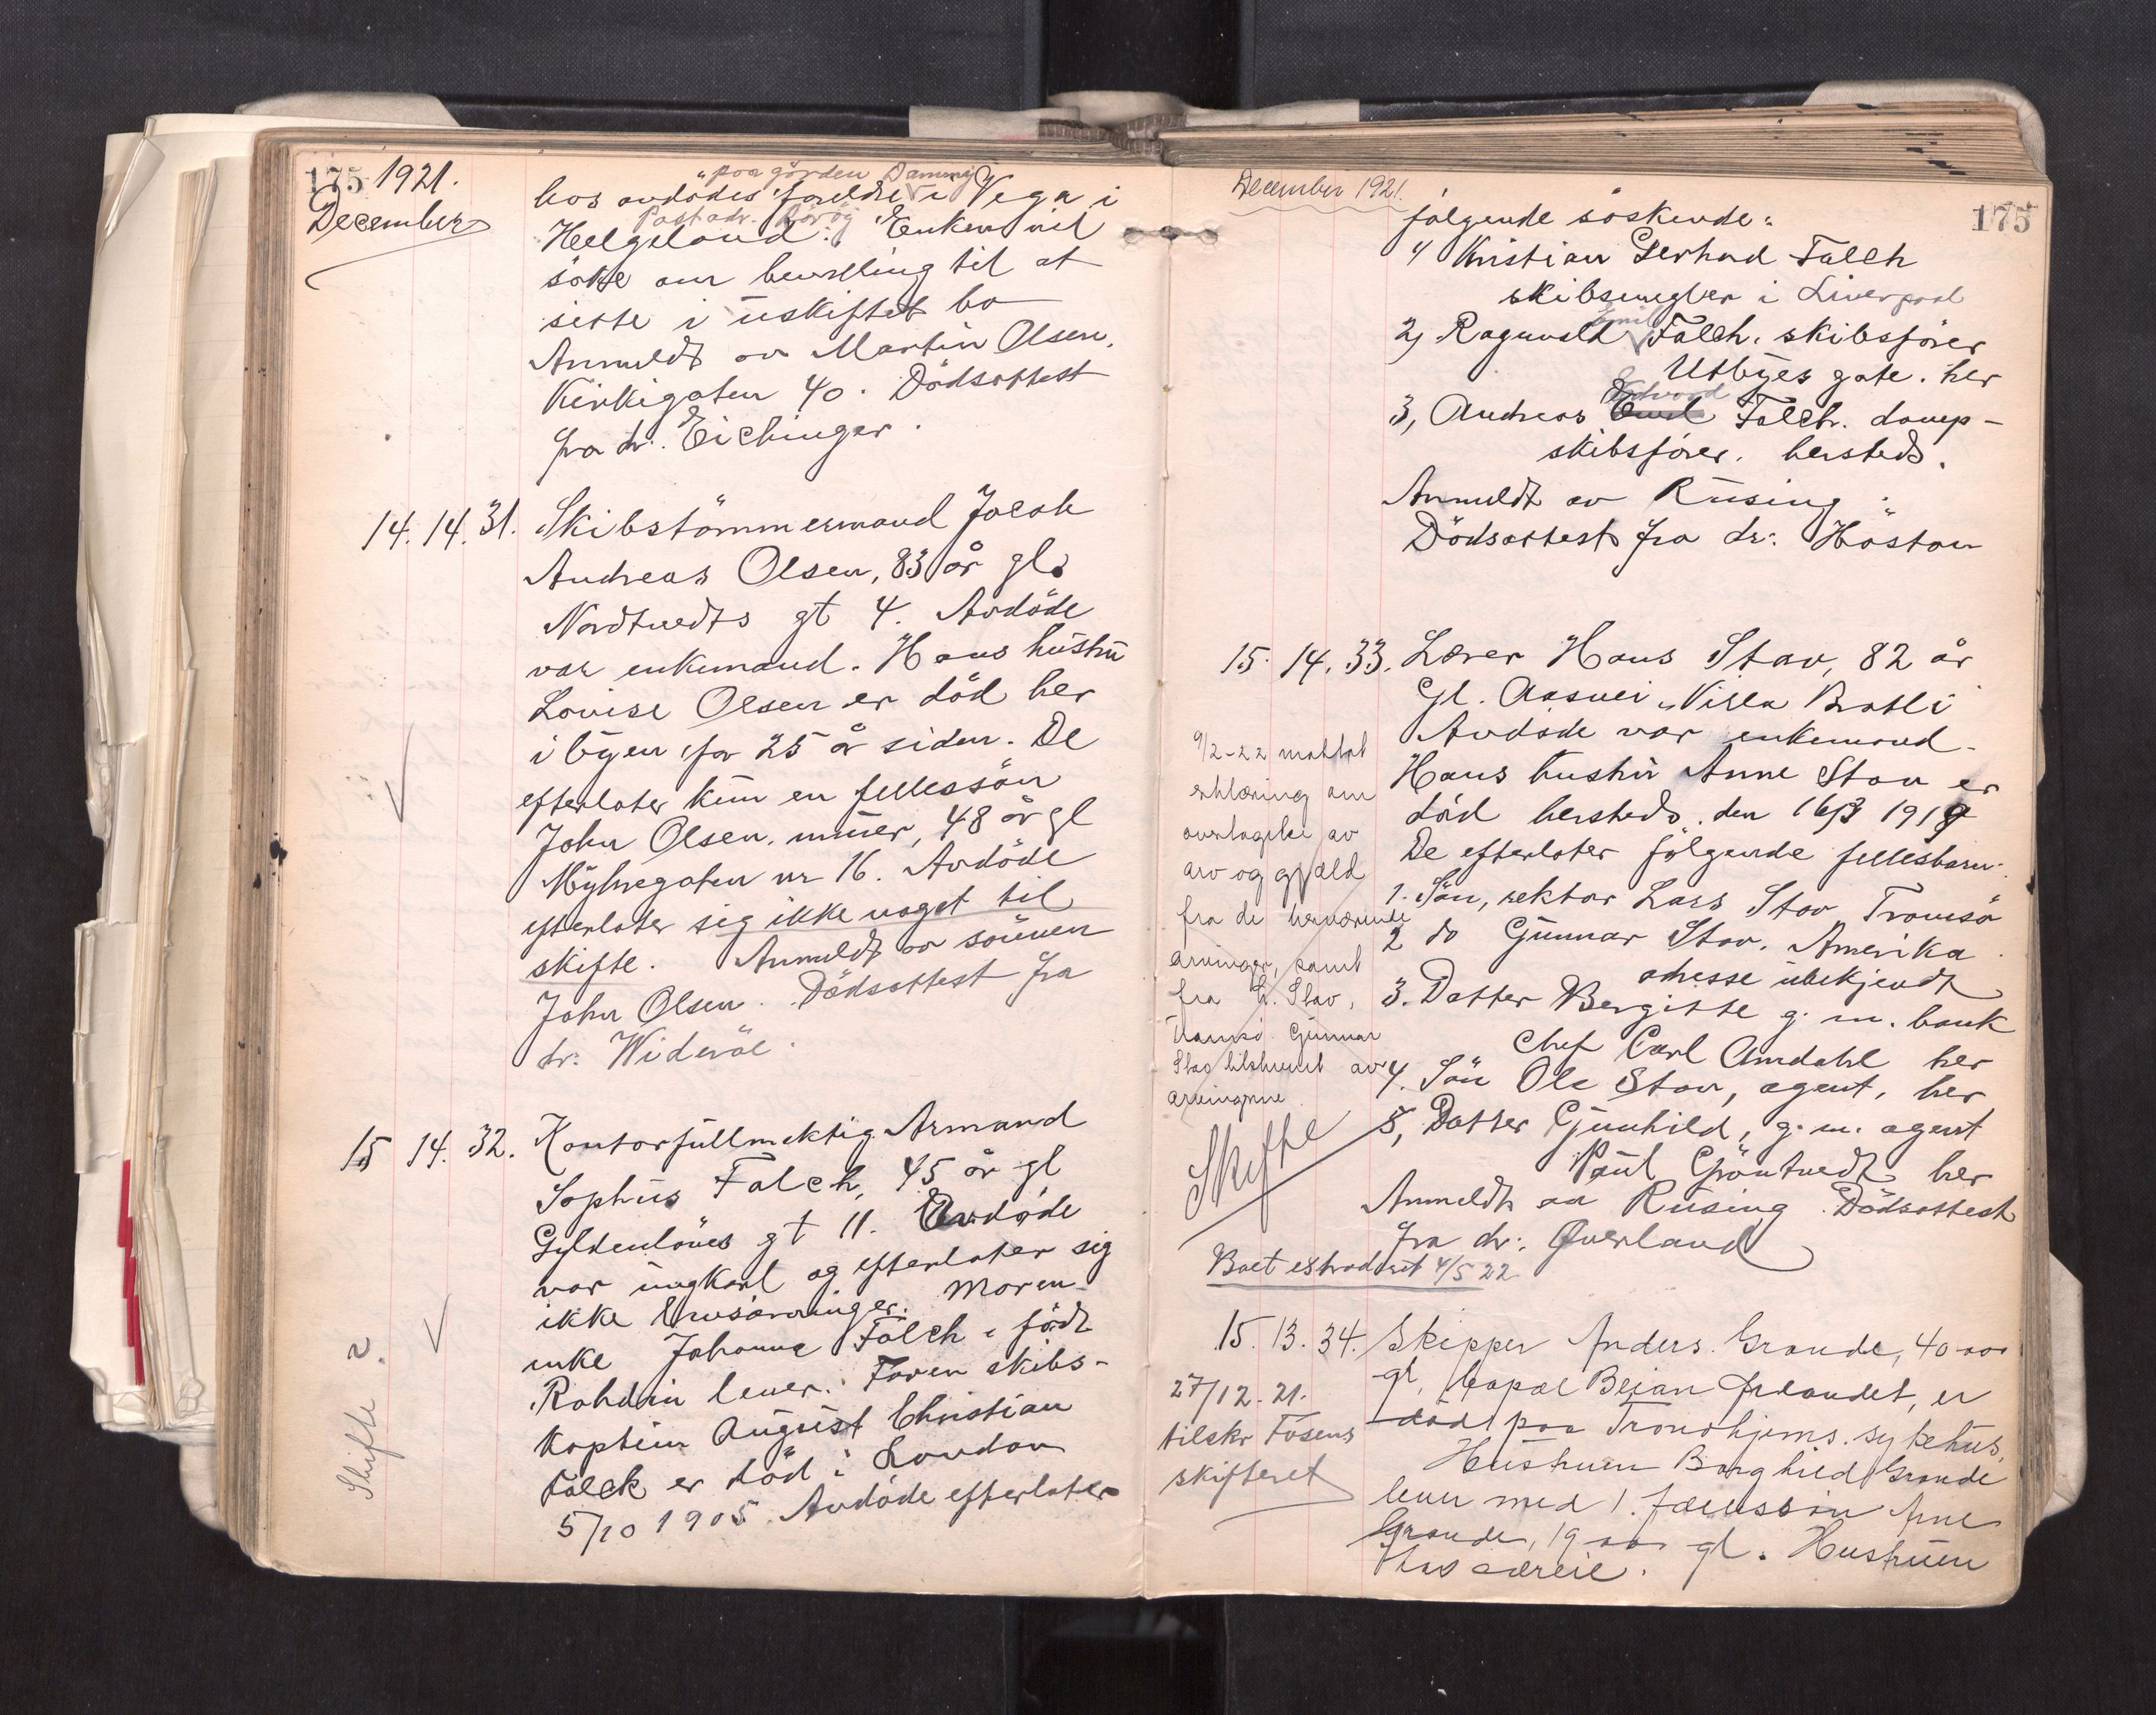 175 1921.
December
"paa gården Dammig
hos avdödes foreldre i Vega i
Postadr. Rörøy
Helgeland. Enken vil
söke om bevilling til at
sitte i uskiftet bo
Anmeldt av Martin Olsen,
Kirkegaten 40. Dödsattest
fra dr. Eichinger.
14. 14. 31. Skibstömmermand Jacob
Andreas Olsen, 83 år gl.
Nordtvedts gt 4. Avdöde
var enkemand. Hans hustru
Lovise Olsen er död her
i byen for 25 år siden. De
efterlater kun en fellessön
John Olsen, murer, 48 år gl
Mylnegaten nr 16. Avdöde
efterlater sig ikke noget til
skifte. Anmeldt av sönnen
John Olsen. Dödsattest fra
dr. Wideröe.
15 14. 32. Kontorfullmektig Armand
Sophus Falch, 45 år gl
Gyldenlöves gt 11. Avdöde
var ungkarl og efterlater sig
ikke livsarvinger. Moren
enke Johanne Falch, födt
Rohdin lever. Faren skibs-
kaptein August Christian
Falck er död i London
5/10 1905. Avdöde efterlater
Skifte
December 1921.
175
følgende söskende:
1) Kristian Gerhard Falch
skibsmegler i Liverpool
Emil
2) Ragnvald Falch, skibsförer
Ulbyes gate. her
Edvard
3, Andreas Emil Falch. damp-
skibsförer. hersteds.
Anmeldt av Rusing.
Dödsattest fra dr. Höstan
15. 14. 33. Lærer Hans Stav, 82 år
Gl. Aasvei "Villa Bratli"
Avdøde var enkemand.
Hans hustru Anne Stav er
död hersteds den 16/3 1919
De efterlater følgende fellesbarn:
1. Sön, rektor Lars Stav Tromsö
2 do Gunnar Stav. Amerika.
adresse ubekjendt
3. Datter Bergitte g. m. bank
chef Carl Amdahl her
4. Sön Ole Stav, agent, her
5, Datter Gunhild, g. m. agent
Paul Gröntvedt her
Anmeldt av Rusing. Dödsattest
fra dr. Qverland
9/2-22 mottat
erklæring om
overtagelse av
arv og gjæld
fra de herværende
arvinger, samt
fra L. Stav,
Tromsö. Gunnar
Stav tilskrevet av
arvingene.
Skifte
Boet extradert 4/5 22
15. 13. 34. Skipper Anders Grande, 40 aar
gl, Beian Ørlandet, er
död paa Trondhjems sykehus.
Hustruen Borghild Grande
lever med 1. fællessön Arne
Grande, 19 aar gl. Hustruen
has særeie.
27/12. 21.
tilskr Fosens
skifteret